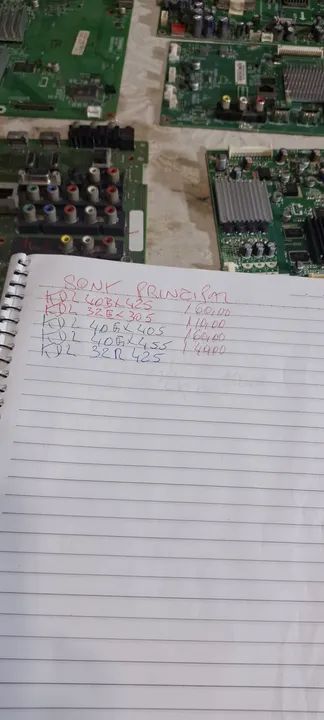 SONY PRINCIPAL
KDL 40EX425 160,00
KDL 32EX305 110,00
KDL 40EX405 160,00
KDL 40EX455 149,00
KDL 32R425